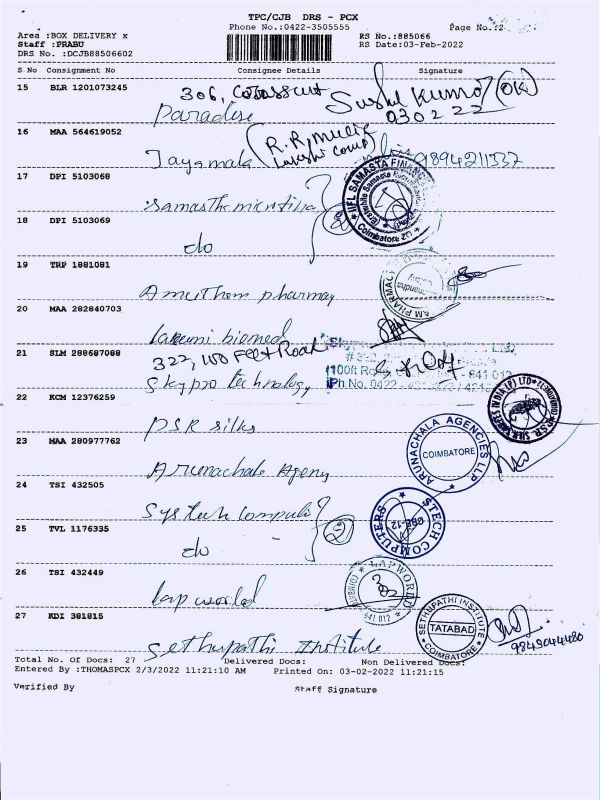 TPC/CJB DRS - PCX
Phone No.:0422-3505555
Page No.:2
Area :BOX DELIVERY x
RS No.:885066
Staff :PRABU
RS Date:03-Feb-2022
DRS No. :DCJB88506602
S No Consignment No Consignee Details Signature
15 BLR 1201073245 306,
Paradise
030222 (OK)
16 MAA 564619052
Jayamala 9894211337
17 DPI 5103068
IIFL SAMASTA FINANCE
Coimbatore
18 DPI 5103069
do
19 TRP 1881081
Amirtham pharmay
20 MAA 282840703
Laxumi biomed
21 SLM 288687088 322, 100 Feet Road
(100ft
Ph No. 0422
641 012
Skypro technology
22 KCM 12376259
PSR silks
23 MAA 280977762
ARUNACHALA AGENCIES LLP
COIMBATORE
Arunachala Agency
24 TSI 432505
STECH COMPUTERS
CBE-12
25 TVL 1176335
do (2)
26 TSI 432449
LAPWORLD
641 012
Lap world
27 KDI 381815
SETHUPATHI INSTITUTE
TATABAD
COIMBATORE
Sethupathi Institute
9843044480
Total No. Of Docs: 27 Delivered Docs: Non Delivered Docs:
Entered By :THOMASPCX 2/3/2022 11:21:10 AM Printed On: 03-02-2022 11:21:15
Verified By Staff Signature